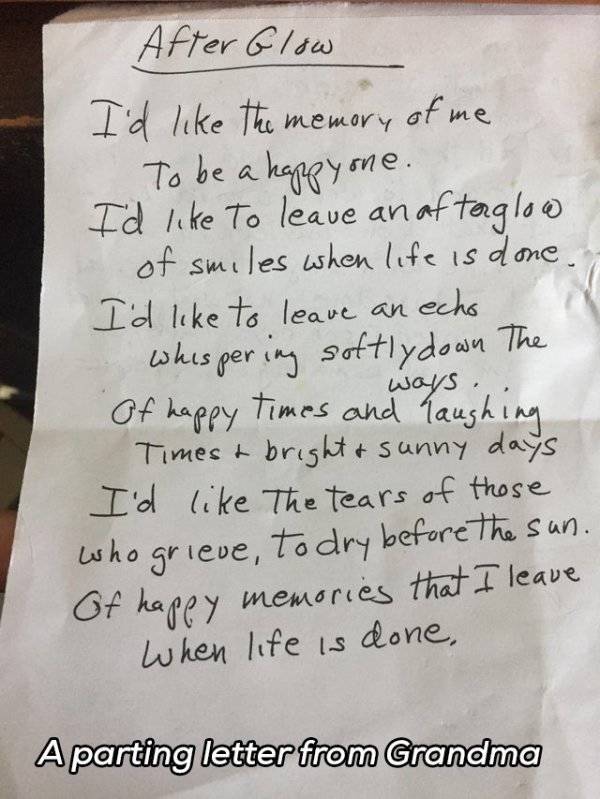 After Glow
I'd like the memory of me
To be a happy one.
I'd like To leave an afterglow
of smiles when life is done.
I'd like to leave an echo
whispering softly down The
ways.
Of happy Times and laughing
Times & bright & sunny days
I'd like The tears of those
who grieve, to dry before The sun.
Of happy memories that I leave
when life is done.
A parting letter from Grandma